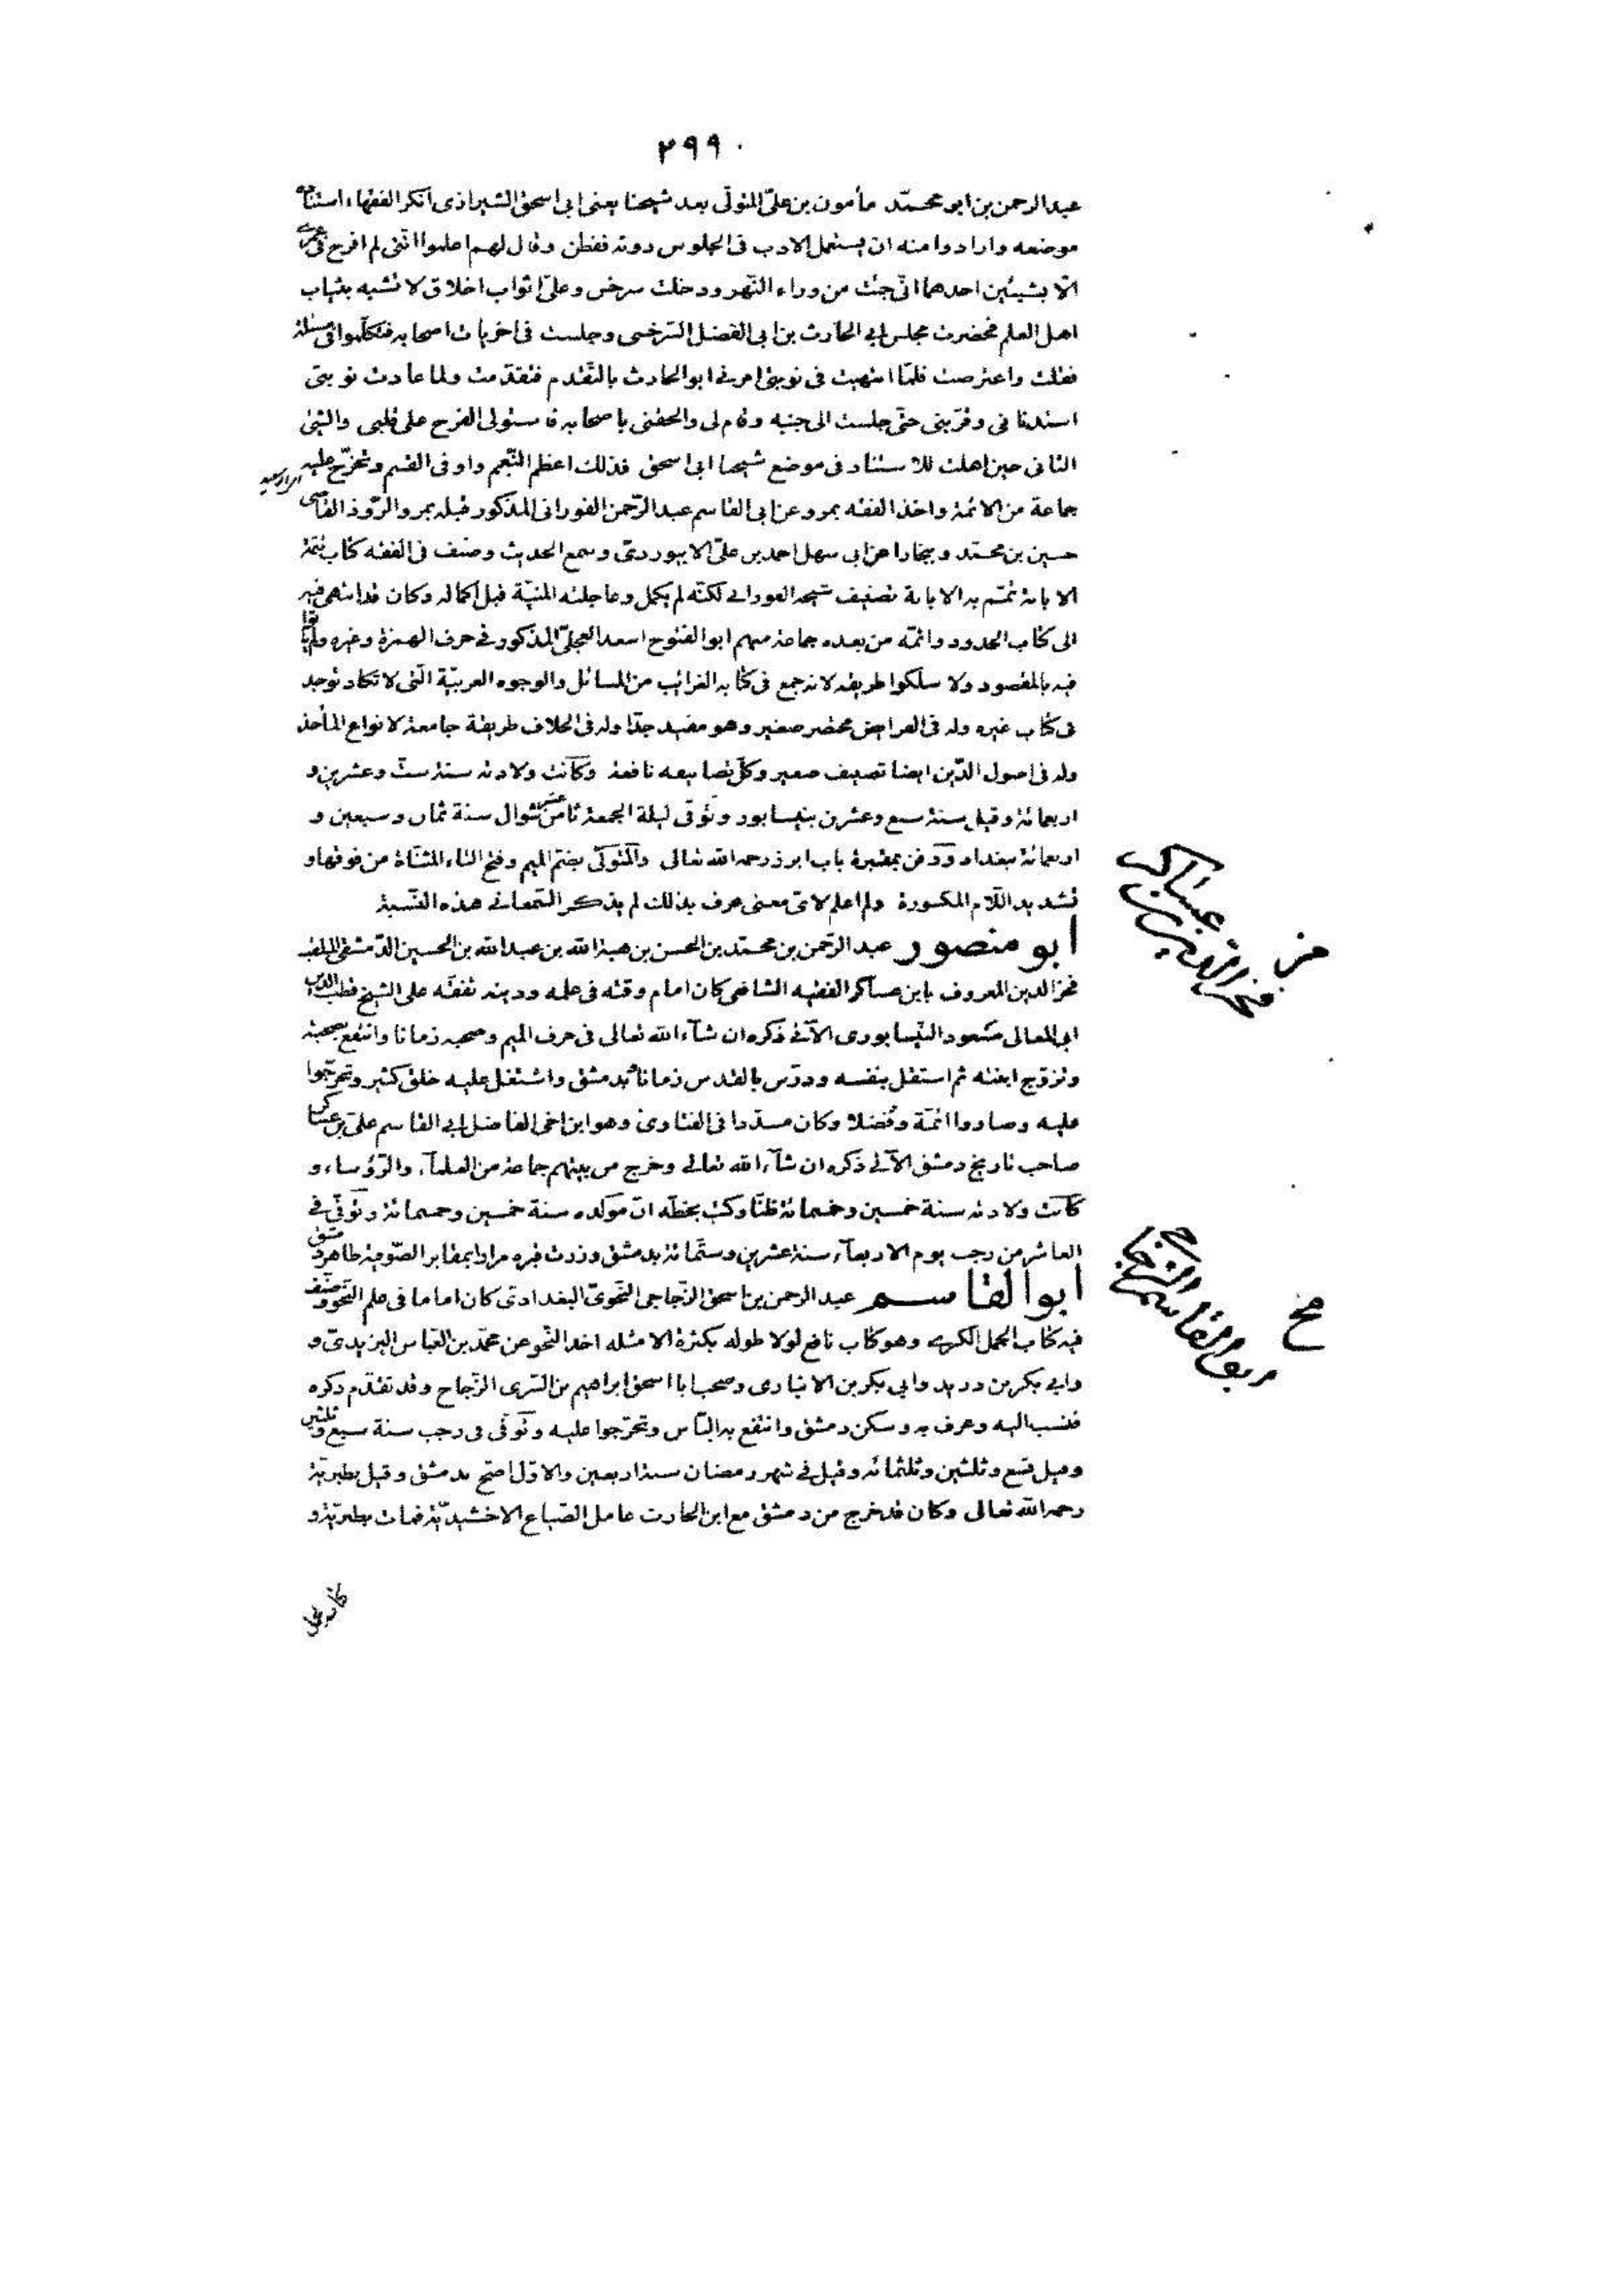 ٢٩٩
عبد الرحمن بن ابو محمّد مأمون بن علىّ المتولّى بعد شيخنا يعنى ابى اسحق الشيرازى انكر الفقهاء استناده
موضعه وارادوا منه ان يستعمل الادب فى الجلوس دونه ففطن وقال لهم اعلموا انّنى لم افرح فى عمرى
الّا بشيئين احدهما انّى جئت من وراء النّهر ودخلت سرخس وعلىّ اثواب اخلاق لا تشبه بثياب
اهل العلم فحضرت مجلس ابى الحارث بن ابى الفضل السّرخسى وجلست فى اخريات اصحابه فتكلّموا فى مسئلة
فقلت واعترضت فلمّا انتهيت فى نوبتى امرنى ابو الحارث بالتّقدم فتقدّمت ولما عادت نوبتى
استدنانى وقرّبنى حتّى جلست الى جنبه وقام لى والحقنى باصحابه فاستولى الفرح على قلبى والشئ
الثانى حين اهلت للاستناد فى موضع شيخنا ابى اسحق فذلك اعظم النّعم واوفى القسم وتخرّج عليه
جماعة من الائمة واخذ الفقه بمرو عن ابى القاسم عبد الرّحمن الفورانى المذكور قبله بمرو الرّوذ القاضى
حسين بن محمّد وببخارا عن ابى سهل احمد بن علىّ الابيوردىّ وسمع الحديث وصنف فى الفقه كتاب تتمة
الابانة تمّم به الابانة تصنيف شيخه الفورانى لكنّه لم يكمل وعاجلته المنيّة قبل اكماله وكان قد انتهى فيه
الى كتاب الحدود واتمّه من بعده جماعة منهم ابو الفتوح اسعد العجلىّ المذكور فى حرف الهمزة وغيره ولم يأتوا
فيه بالمقصود ولا سلكوا طريقه لانه جمع فى كتابه الغرائب من المسائل والوجوه الغريبّة الّتى لا تكاد توجد
فى كتاب غيره وله فى الفرائض مختصر صغير وهو مفيد جدّا وله فى الخلاف طريقة جامعة لانواع المأخذ
وله فى اصول الدّين ايضا تصنيف صغير وكلّ تصانيفه نافعة وكانت ولادته سنة ستّ وعشرين و
اربعمائة وقيل سنة سبع وعشرين بنيسابور وتوفّى ليلة الجمعة ثامن عشر شوال سنة ثمان وسبعين و
اربعمائة ببغداد ودفن بمقبرة باب ابرز رحمه الله تعالى والمتولّى بضمّ الميم وفتح التاء المثنّاة من فوقها و
تشديد اللّام المكسورة ولم اعلم لاىّ معنى عرف بذلك لم يذكر السّمعانى هذه النّسبة
ابو منصور عبد الرّحمن بن محمّد بن الحسن بن هبة الله بن عبد الله بن الحسين الدّمشقى الملقب
فخر الدين المعروف بابن عساكر الفقيه الشافعى كان امام وقته فى علمه ودينه تفقّه على الشيخ قطب الدين
ابى المعالى مسعود النّيسابورى الآتى ذكره ان شاء الله تعالى فى حرف الميم وصحبه زمانا وانتفع بصحبته
وتزوّج ابنته ثم استقل بنفسه ودرّس بالقدس زمانا وبدمشق واشتغل عليه خلق كثير وتخرّجوا
عليه وصاروا ائمّة وفضلا وكان مسدّدا فى الفتاوى وهو ابن اخى الفاضل ابى القاسم علىّ بن عساكر
صاحب تاريخ دمشق الآتى ذكره ان شاء الله تعالى وخرج من بيتهم جماعة من العلماء والرّؤساء و
كانت ولادته سنة خمسين وخمسمائة ظنّا وكتب بخطّه انّ مولده سنة خمسين وخمسمائة وتوفّى فى
العاشر من رجب يوم الاربعاء سنة عشرين وستّمائة بدمشق وزرت قبره مرارا بمقابر الصّوفية ظاهر دمشق
ابو القاسم عبد الرحمن بن اسحق الزّجاجى النّحوىّ البغدادىّ كان اماما فى علم النّحو وصنّف
فيه كتاب الجمل الكبرى وهو كتاب نافع لولا طوله بكثرة الامثله اخذ النّحو عن محمّد بن العبّاس اليزيدىّ و
وابى بكر بن دريد وابى بكر بن الانبارى وصحب ابا اسحق ابراهيم بن السّرى الزّجاج وقد تقدّم ذكره
فنسب اليه وعرف به وسكن دمشق وانتفع به النّاس وتخرّجوا عليه وتوفّى فى رجب سنة سبع وثلثين
وقيل تسع وثلثين وثلثمائه وقيل فى شهر رمضان سنة اربعين والاوّل اصحّ بدمشق وقيل بطبريّة
رحمه الله تعالى وكان قد خرج من دمشق مع ابن الحارث عامل الضّياع الاخشيديّة فمات بطبريّة و
فخر الدين بن عساكر
ابو القاسم الزجاجى
كتابه الجمل